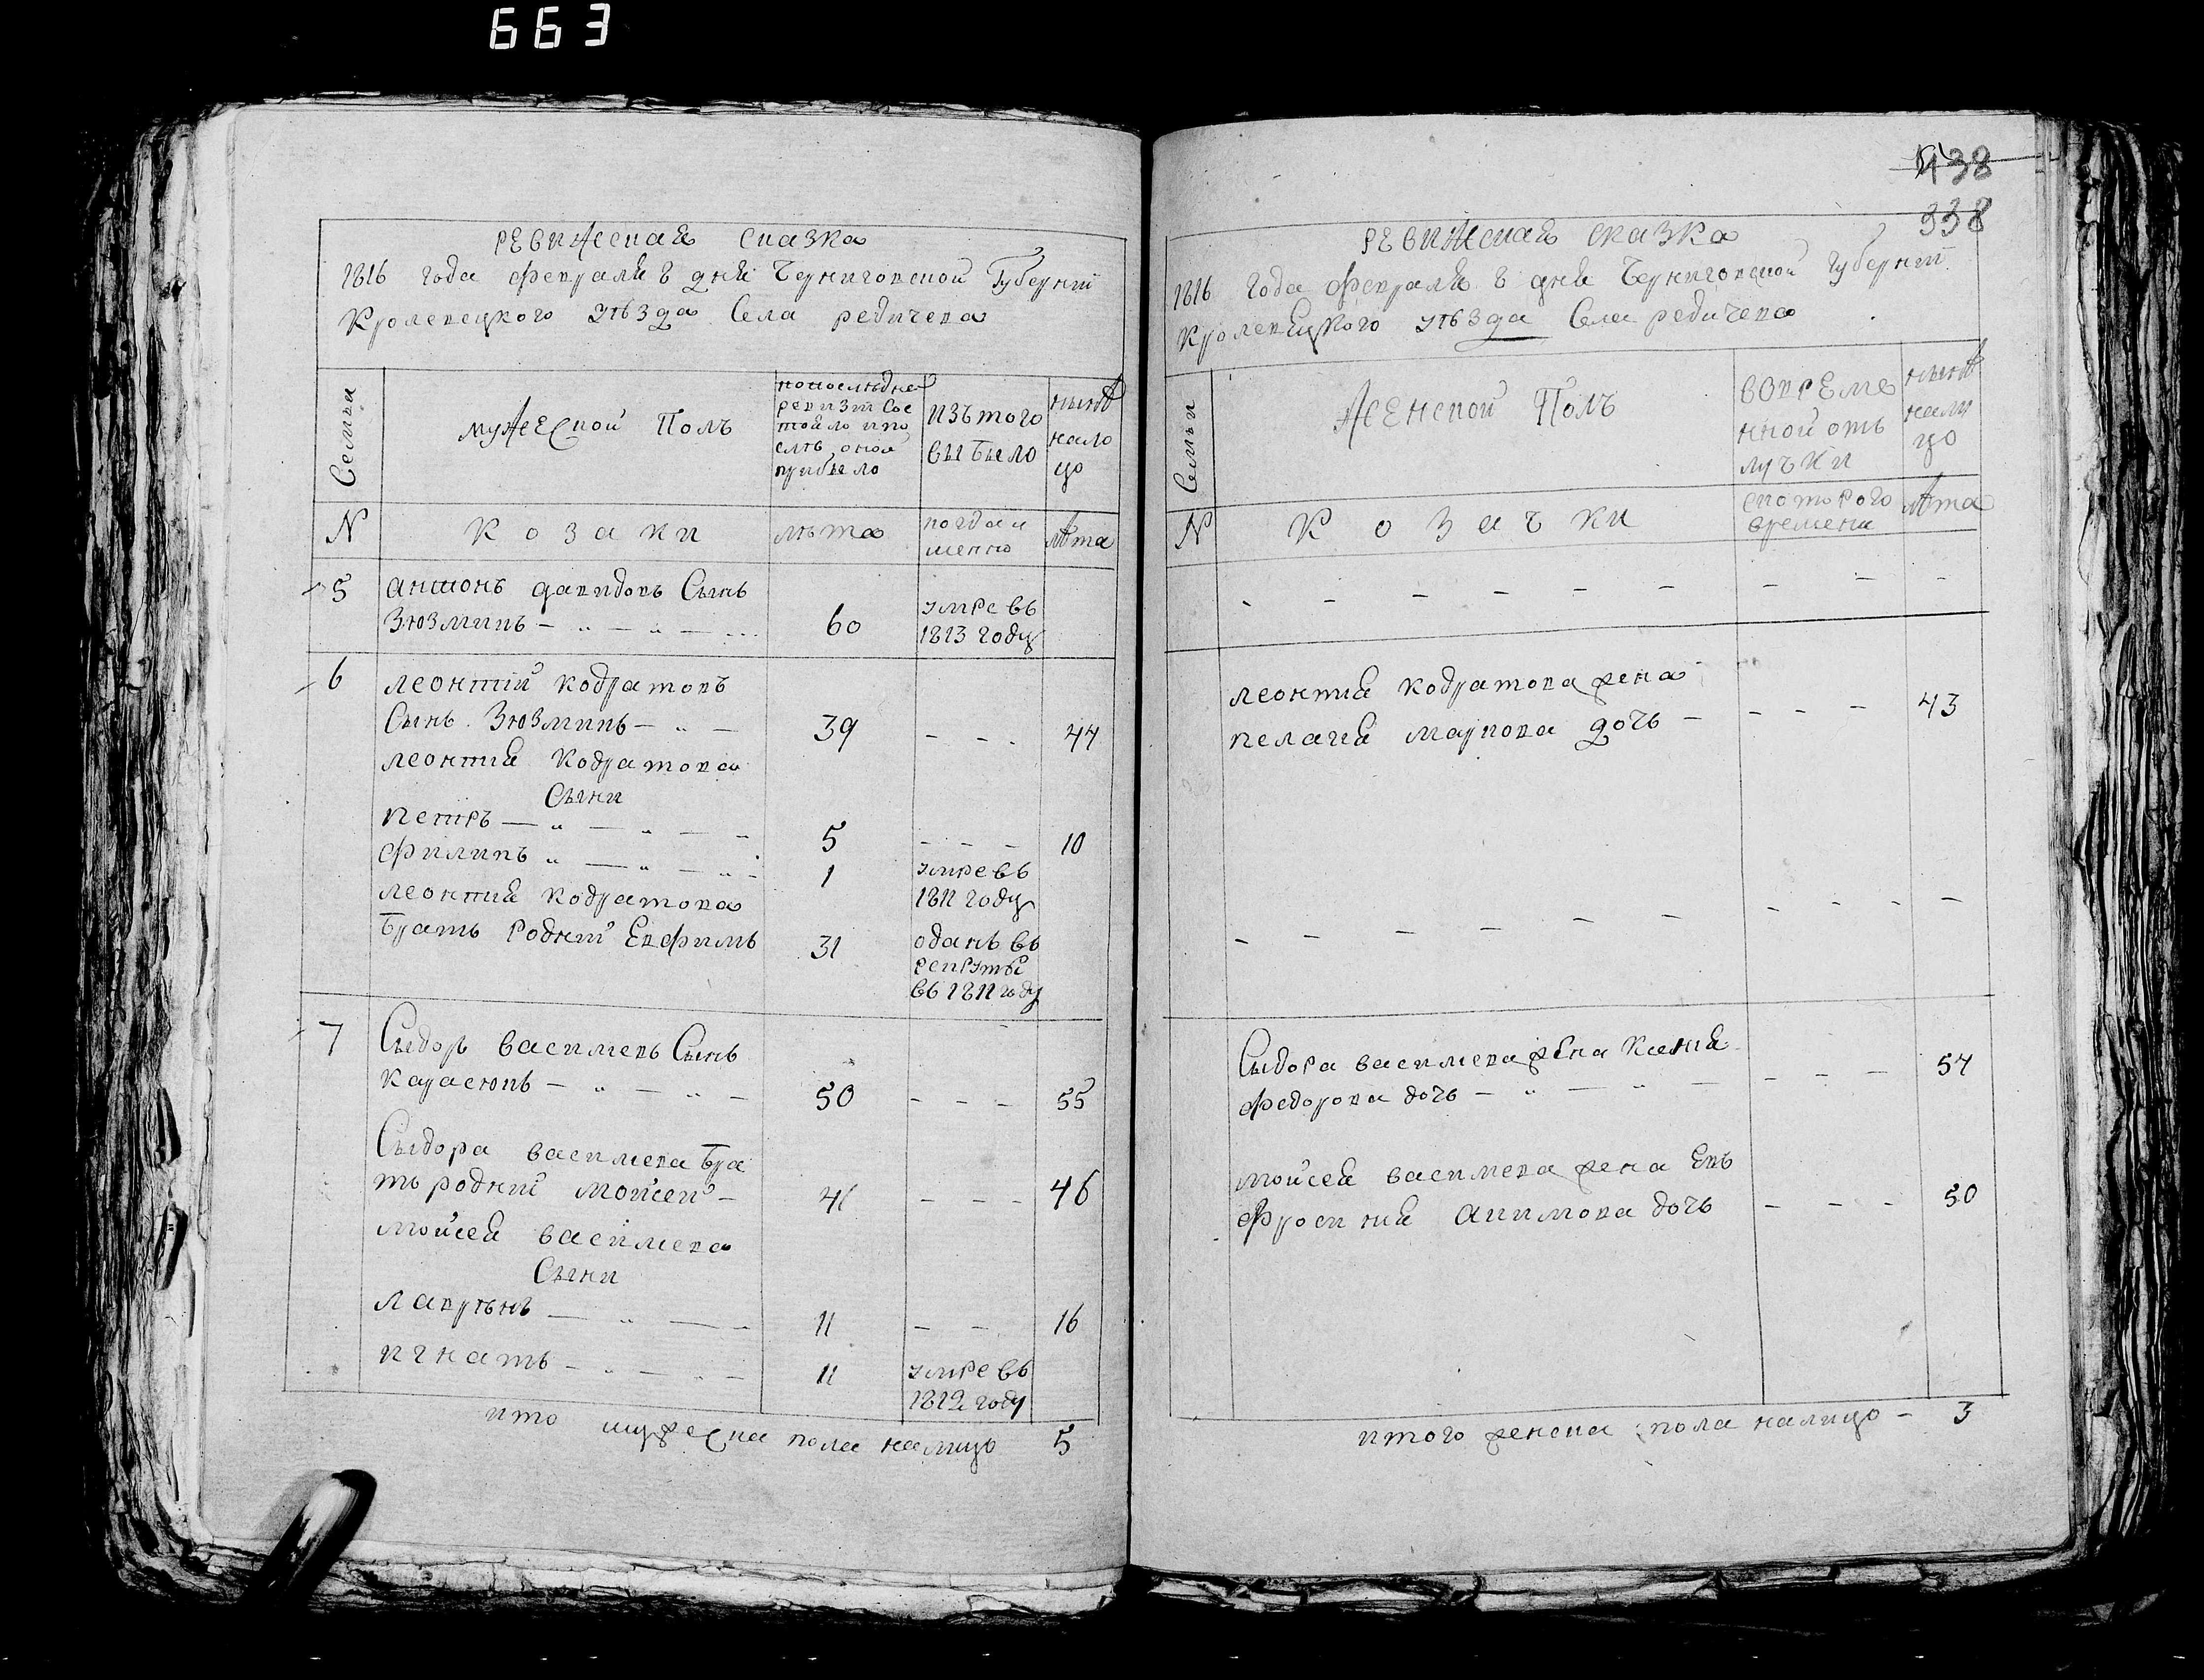 663
438
338
РЕВИЖСКАЯ СКАЗКА
1816 года февраля 8 дня Черниговской Губернии
Кролевецкого уѣзда Села редичева
Семьи
мужеской Полъ
попоследне
ревизіи сос
тояло ипо
слѣ оной
прибыло
изътого
выбыло
нынѣ
нали
цо
N
козаки
лѣта
когдаи
менно
лѣта
5
антонъ давидовъ Сынъ
Зюзминъ
60
умре въ
1813 году
6
леонтій кодратовъ
Сынъ Зюзминъ
39
44
леонтия кодратова
Сыни
петръ
5
10
филипъ
1
умре въ
1811 году
леонтия кодратова
братъ родній Евфимъ
31
оданъ въ
рекруты
въ 1811 году
7
Сыдоръ василевъ Сынъ
карасювъ
50
55
Сыдора василева бра
тъ родній мойсей
41
46
мойсея василева
Сыни
лаврѣнъ
11
16
игнатъ
11
умре въ
1812 году
ито мужеска пола налицо 5
РЕВИЖСКАЯ СКАЗКА
1816 года февраля 8 дня Черниговской губерніи
Кролевецкого уѣзда Села редичева
Семьи
женской Полъ
вовреме
нной отъ
лучки
нынѣ
нали
цо
N
козачки
скоторого
времени
лѣта
леонтия кодратова жена
пелагия маркова дочь
43
Сыдора василева жена Ксения
федорова дочь
54
мойсея василева жена Евъ
фросиния акимова дочь
50
итого женска пола налицо 3